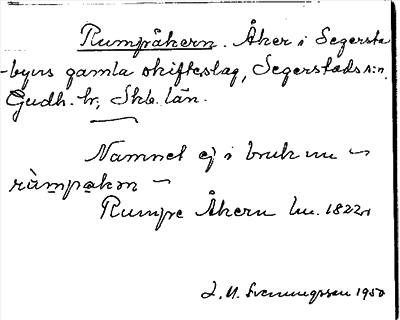 Rumpåkern. Åker i Segersta
-byns gamla skifteslag, Segerstads sn.
Gudh. hr, Skb. län.
Namnet ej i bruk nu –
råmpakɷn –
Rumpe Åkern lm. 1822.
J. U. Svenungsson 1950